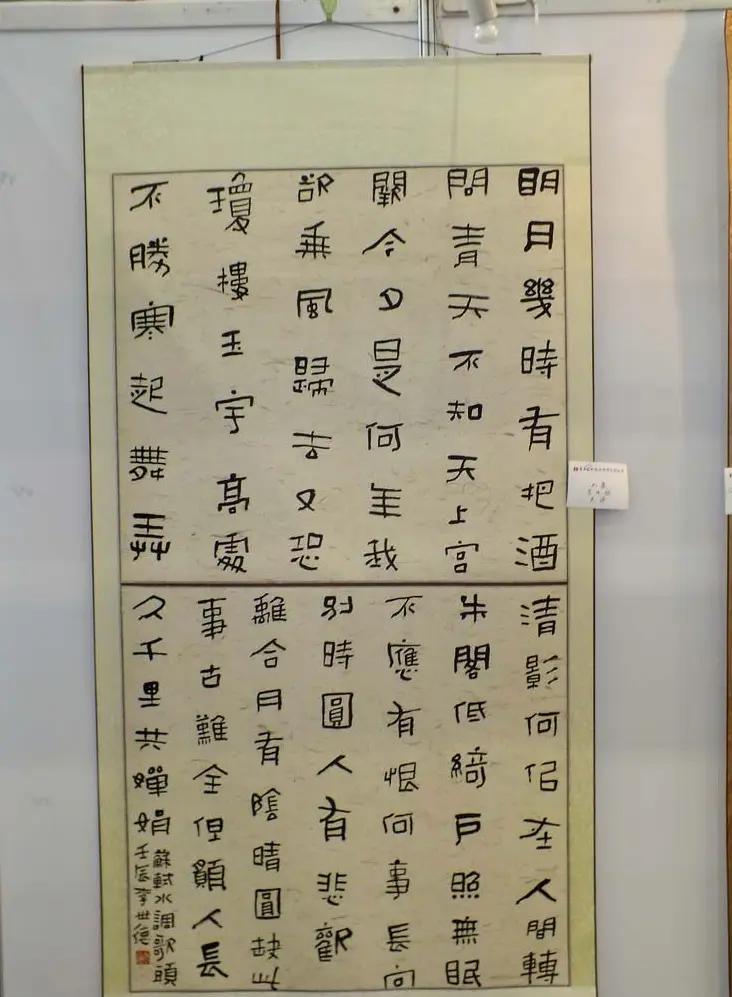 眀月幾時有把酒
問青天不知天上宮
闕今夕是何年我
欲乘風歸去又恐
瓊樓玉宇高處
不勝寒起舞弄
清影何佀在人間轉
朱閣低綺戶照無眠
不應有恨何事長向
別時圓人有悲歡
離合月有陰晴圓缺此
事古難全但願人長
久千里共嬋娟
蘇軾水調歌頭
壬辰李世德